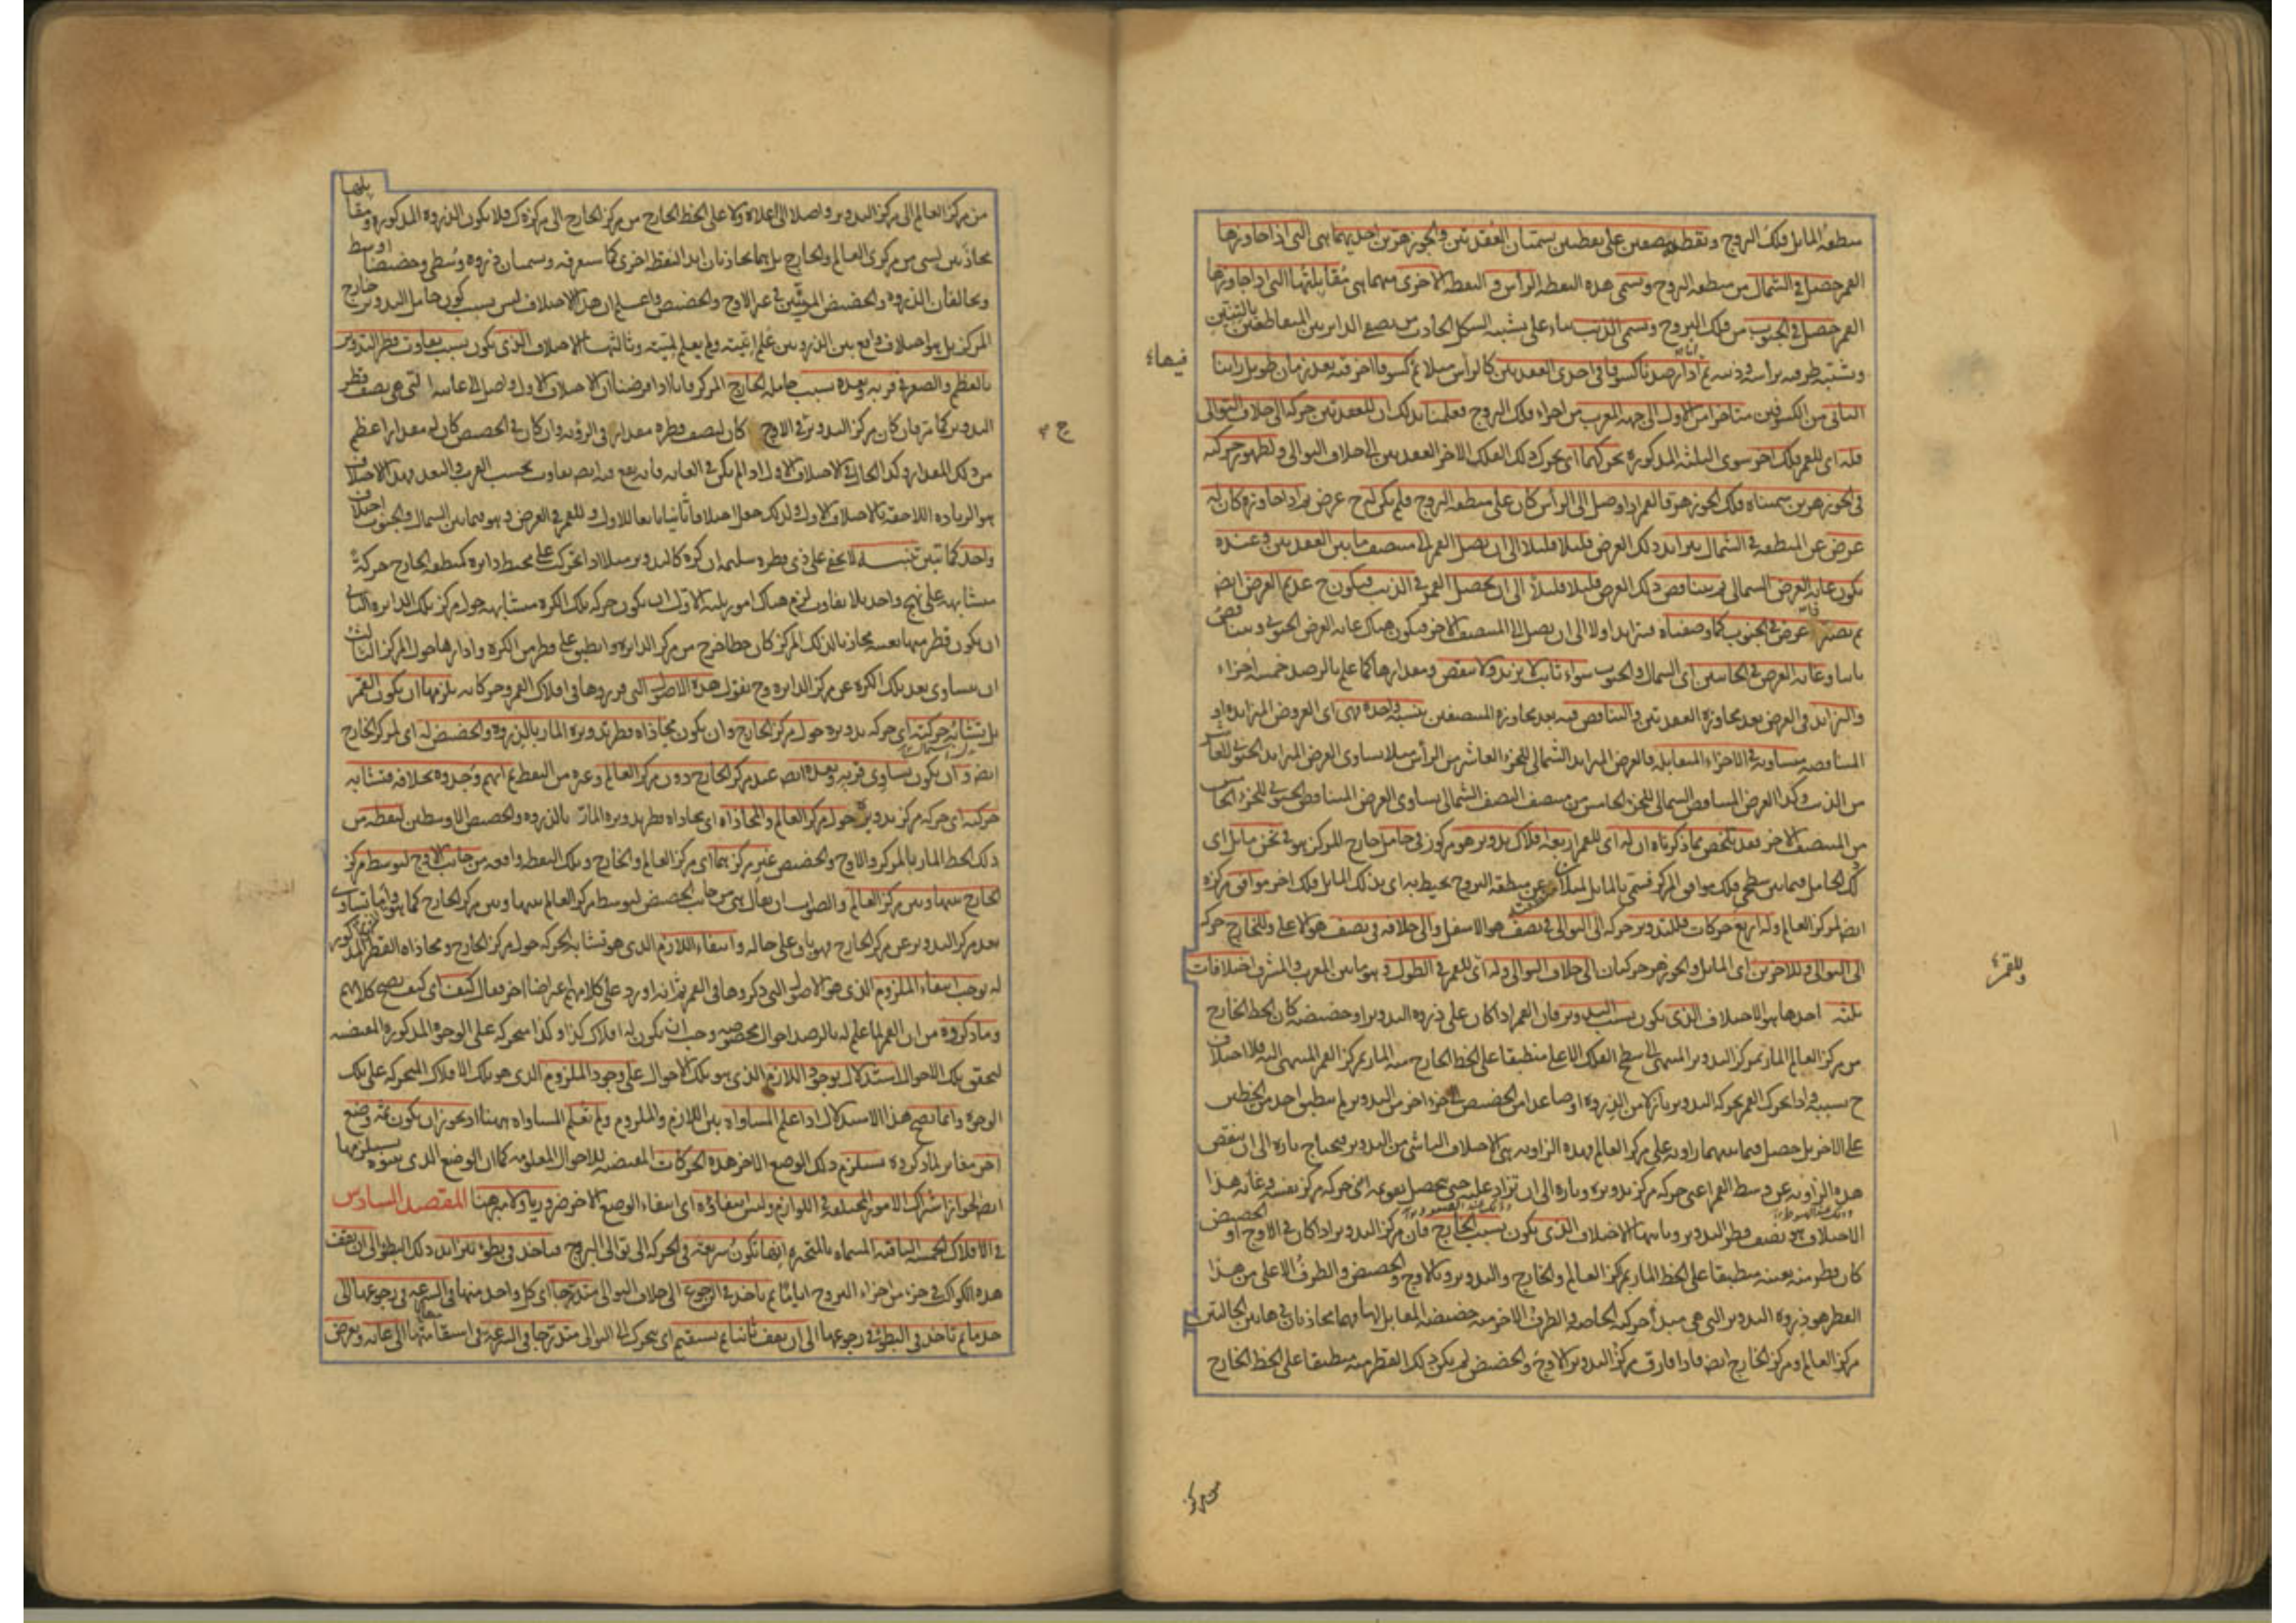 منطقة المايل فلك البروج وتقطعه بنصفين على نقطتين يسميان العقدتين والجوزهرين احديهما هى التى اذا جاوزها
القمر حصل فى الشمال من منطقة البروج ويسمى هذه النقطة الرأس والنقطة الاخرى منهما هى مقابلتها التى اذا جاوزها
القمر حصل فى الجنوب من فلك البروج ويسمى الذنب بناء على تشبيه الشكل الحادث من نصفى الدايرتين المتقاطعتين بالتنين
وتشبيه طرفيه برأسه وذنبه ثم انا اذا رصدنا كسوفا فى احدى العقدتين كالرأس مثلا ثم كسوفا آخر فيه بعد زمان طويل رأينا
الثانى من الكسوفين متأخرا من الاول الى جهة المغرب من اجزاء فلك البروج فعلمنا بذلك ان للعقدتين حركة الى خلاف التوالى
فله اى للقمر فلك آخر سوى الثلثة المذكورة يحركهما اى يحرك ذلك الفلك الآخر العقدتين الى خلاف التوالى ولظهور حركته
فى الجوزهرين سميناه فلك الجوزهر فالقمر اذا وصل الى الرأس كان على منطقة البروج فلم يكن له ح عرض ثم اذا جاوزه كان له
عرض عن المنطقة فى الشمال يتزايد ذلك العرض قليلا قليلا الى ان يصل القمر الى منتصف ما بين العقدتين وعنده
يكون غاية العرض الشمالى ثم يتناقص ذلك العرض قليلا قليلا الى ان يحصل القمر فى الذنب فيكون ح عديم العرض ايضا
ثم يصير عرض فى الجنوب كما وصفناه فيتزايد اولا الى ان يصل الى المنتصف الآخر فيكون هناك غاية العرض الجنوبى ويتناقص
ثانيا وغاية العرض فى الجانبين اى الشمال والجنوب سواء ثابت لا يزيد ولا ينقص ومقدارها كما علم بالرصد خمسة اجزاء
والتزايد فى العرض بعد مجاوزة العقدتين والتناقص فيه بعد مجاوزة المنتصفين بنسبة واحدة فهى اى العروض المتزايدة او
المتناقصة متساوية فى الاجزاء المتقابلة فالعرض المتزايد الشمالى للجزء العاشر من الرأس مثلا يساوى العرض المتزايد الجنوبى للعاشر
من الذنب وكذا العرض المتناقص الشمالى للجزء الخامس من منتصف النصف الشمالى يساوى العرض المتناقص الجنوبى للجزء الخامس
من المنتصف الآخر فقد تلخص مما ذكرناه ان له اى للقمر اربعة افلاك تدوير هو مركوز فى حامل خارج المركز هو فى ثخن مايل اى
ذلك الحامل فيما بين سطحى فلك موافق المركز مسمى بالمايل لميلان منطقته عن منطقة البروج يحيط به اى بذلك المايل فلك آخر موافق مركزه
ايضا لمركز العالم وله اربع حركات فللتدوير حركة الى التوالى فى نصف هو الاسفل والى خلافه فى نصف هو الاعلى وللخارج حركة
الى التوالى وللآخرين اى المايل والجوزهر حركتان الى خلاف التوالى وله اى للقمر فى الطول وهو ما بين المغرب والمشرق اختلافات
ثلثة احدها هو الاختلاف الذى يكون بسبب التدوير فان القمر اذا كان على ذروة التدوير او حضيضه كان الخط الخارج
من مركز العالم المار بمركز التدوير المنتهى الى سطح الفلك الاعلى منطبقا على الخط الخارج منه المار بمركز القمر المنتهى اليه فلا اختلاف
ح بسببه واذا تحرك القمر بحركة التدوير نازلا من الذروة او صاعدا من الحضيض الى جزء آخر من التدوير لم ينطبق احد من الخطين
على الآخر بل حصل فيما بينهما زاوية على مركز العالم وهذه الزاوية هى الاختلاف الناشى من التدوير فيحتاج تارة الى ان ينقص
هذه الزاوية عن وسط القمر اعنى حركة مركز تدويره وتارة الى ان تزاد عليه حتى يحصل تقويمه اعنى حركة مركز نفسه وغاية هذا
الاختلاف هو نصف قطر التدوير وثانيها الاختلاف الذى يكون بسبب الخارج فان مركز التدوير اذا كان فى الاوج او الحضيض
كان قطر منه بعينه منطبقا على الخط المار بمركز العالم والخارج والتدوير وبالاوج والحضيض والطرف الاعلى من هذا
القطر هو ذروة التدوير التى هى مبدأ حركته الخاصة والطرف الآخر منه حضيضه المقابل لها فهما محاذيان فى هاتين الحالتين
مركز العالم ومركز الخارج ايضا فاذا فارق مركز التدوير الاوج والحضيض لم يكن ذلك القطر منه منطبقا على الخط الخارج
فيهما
وللقمر
من مركز العالم الى مركز التدوير واصلا الى اعلاه ولا على الخط الخارج من مركز الخارج الى مركزه ك فلا يكون الذروة المذكورة ومقابلها
محاذيين لشى من مركزى العالم والخارج بل هما يحاذيان ابدا النقطة اخرى كما ستعرفه ويسميان ذروة وسطى وحضيضا اوسط
ويخالفان الذروة والحضيض المرئيين فى غير الاوج والحضيض واعلم ان هذا الاختلاف ليس بسبب كون حامل التدوير خارج
المركز بل هو اختلاف واقع بين الذروتين علم انيته ولم يعلم لميته وثالثها الاختلاف الذى يكون بسبب تفاوت قطر التدوير
بالعظم والصغر فى قربه وبعده بسبب حامله الخارج المركز فانا اذا فرضنا ان الاختلاف الاول واصل الى غايته التى هى نصف قطر
التدوير كما مر فان كان مركز التدوير فى الاوج كان لنصف قطره مقدار فى الرؤية وان كان فى الحضيض كان له مقدار اعظم
من ذلك المقدار وكذا الحال فى الاختلاف الاول اذا لم يكن فى الغاية فانه يقع فيه ايضا تفاوت بحسب القرب والبعد وهذا الاختلاف
هو الزيادة اللاحقة بالاختلاف الاول ولذلك جعل اختلافا ثانيا تابعا للاول وللقمر فى العرض وهو فيما بين الشمال والجنوب اختلاف
واحد كما تبين تنبيه لا يخفى على ذى فطرة سليمة ان كرة كالتدوير مثلا اذا تحركت على محيط دايرة كمنطقة الخارج حركة
متشابهة على نهج واحد بلا تفاوت لزم هناك امور ثلثة الاول ان يكون حركة تلك الكرة متشابهة حول مركز تلك الدايرة الثانى
ان يكون قطر منها بعينه محاذيا لذلك المركز كان خطا خرج من مركز الدايرة وانطبق على قطر من الكرة وادارها حول المركز الثالث
ان يتساوى بعد تلك الكرة عن مركز الدايرة وح نقول هذه الاصول التى قرروها فى افلاك القمر وحركاته يلزمها ان يكون القمر
بل تشابه حركته اى حركة تدويره حول مركز الخارج وان يكون محاذاة قطر تدويره المار بالذروة والحضيض له اى لمركز الخارج
ايضا وان يكون تساوى قربه وبعده ايضا عند مركز الخارج دون مركز العالم وغيره من النقط ثم انهم وجدوه بخلافه فتشابه
حركته اى حركة مركز تدويره حول مركز العالم والمحاذاة اى محاذاة قطر تدويره المار بالذروة والحضيض الاوسطين لنقطة من
ذلك الخط المار بالمركز والاوج والحضيض غير مركزيهما اى مركزى العالم والخارج وتلك النقطة واقعة من جانب الاوج لتوسط مركز
الخارج بينها وبين مركز العالم والصواب ان يقال هى من جانب الحضيض لتوسط مركز العالم بينها وبين مركز الخارج كما هو واما تساوى
بعد مركز التدوير عن مركز الخارج فهو باق على حاله وانتفاء اللازم الذى هو تشابه الحركة حول مركز الخارج ومحاذاة القطر المذكور
له يوجب انتفاء الملزوم الذى هو الاصول التى ذكروها فى القمر ثم انه اورد على كلامهم اعتراضا آخر فقال كيف اى كيف يصح كلامهم
وما ذكروه من ان القمر لما علم له بالرصد احوال مخصوصة وجب ان يكون له افلاك كذا وكذا متحركة على الوجوه المذكورة المقتضية
لتحقق تلك الاحوال استدلال بوجود اللازم الذى هو تلك الاحوال على وجود الملزوم الذى هو تلك الافلاك المتحركة على تلك
الوجوه وانما يصح هذا الاستدلال اذا علم المساواة بين اللازم والملزوم ولم تعلم المساواة ههنا اذ يجوز ان يكون ثمه وضع
آخر مغاير لما ذكروه يستلزم ذلك الوضع الآخر هذه الحركات المقتضية للاحوال المعلومة كما ان الوضع الذى بينوه يستلزمها
ايضا لجواز اشتراك الامور المختلفة فى اللوازم وليس انتفاؤه اى انتفاء الوضع الآخر ضروريا ولا مبرهنا المقصد السادس
فى الافلاك الخمسة الباقية المسماة بالمتحيرة انها تكون سريعة فى الحركة الى توالى البروج فتاخذ فى بطؤ يتزايد ذلك البطؤ الى ان يقف
هذه الكواكب فى جزء من اجزاء البروج اياما ثم تاخذ فى الرجوع الى خلاف التوالى متدرجا اى كل واحد منها فى السرعة فى رجوعها الى
حد ما ثم تاخذ فى البطؤ فى رجوعها الى ان يقف ثانيا ثم يستقيم اى يتحرك الى التوالى متدرجا فى السرعة فى استقامتها الى غاية ويعرض